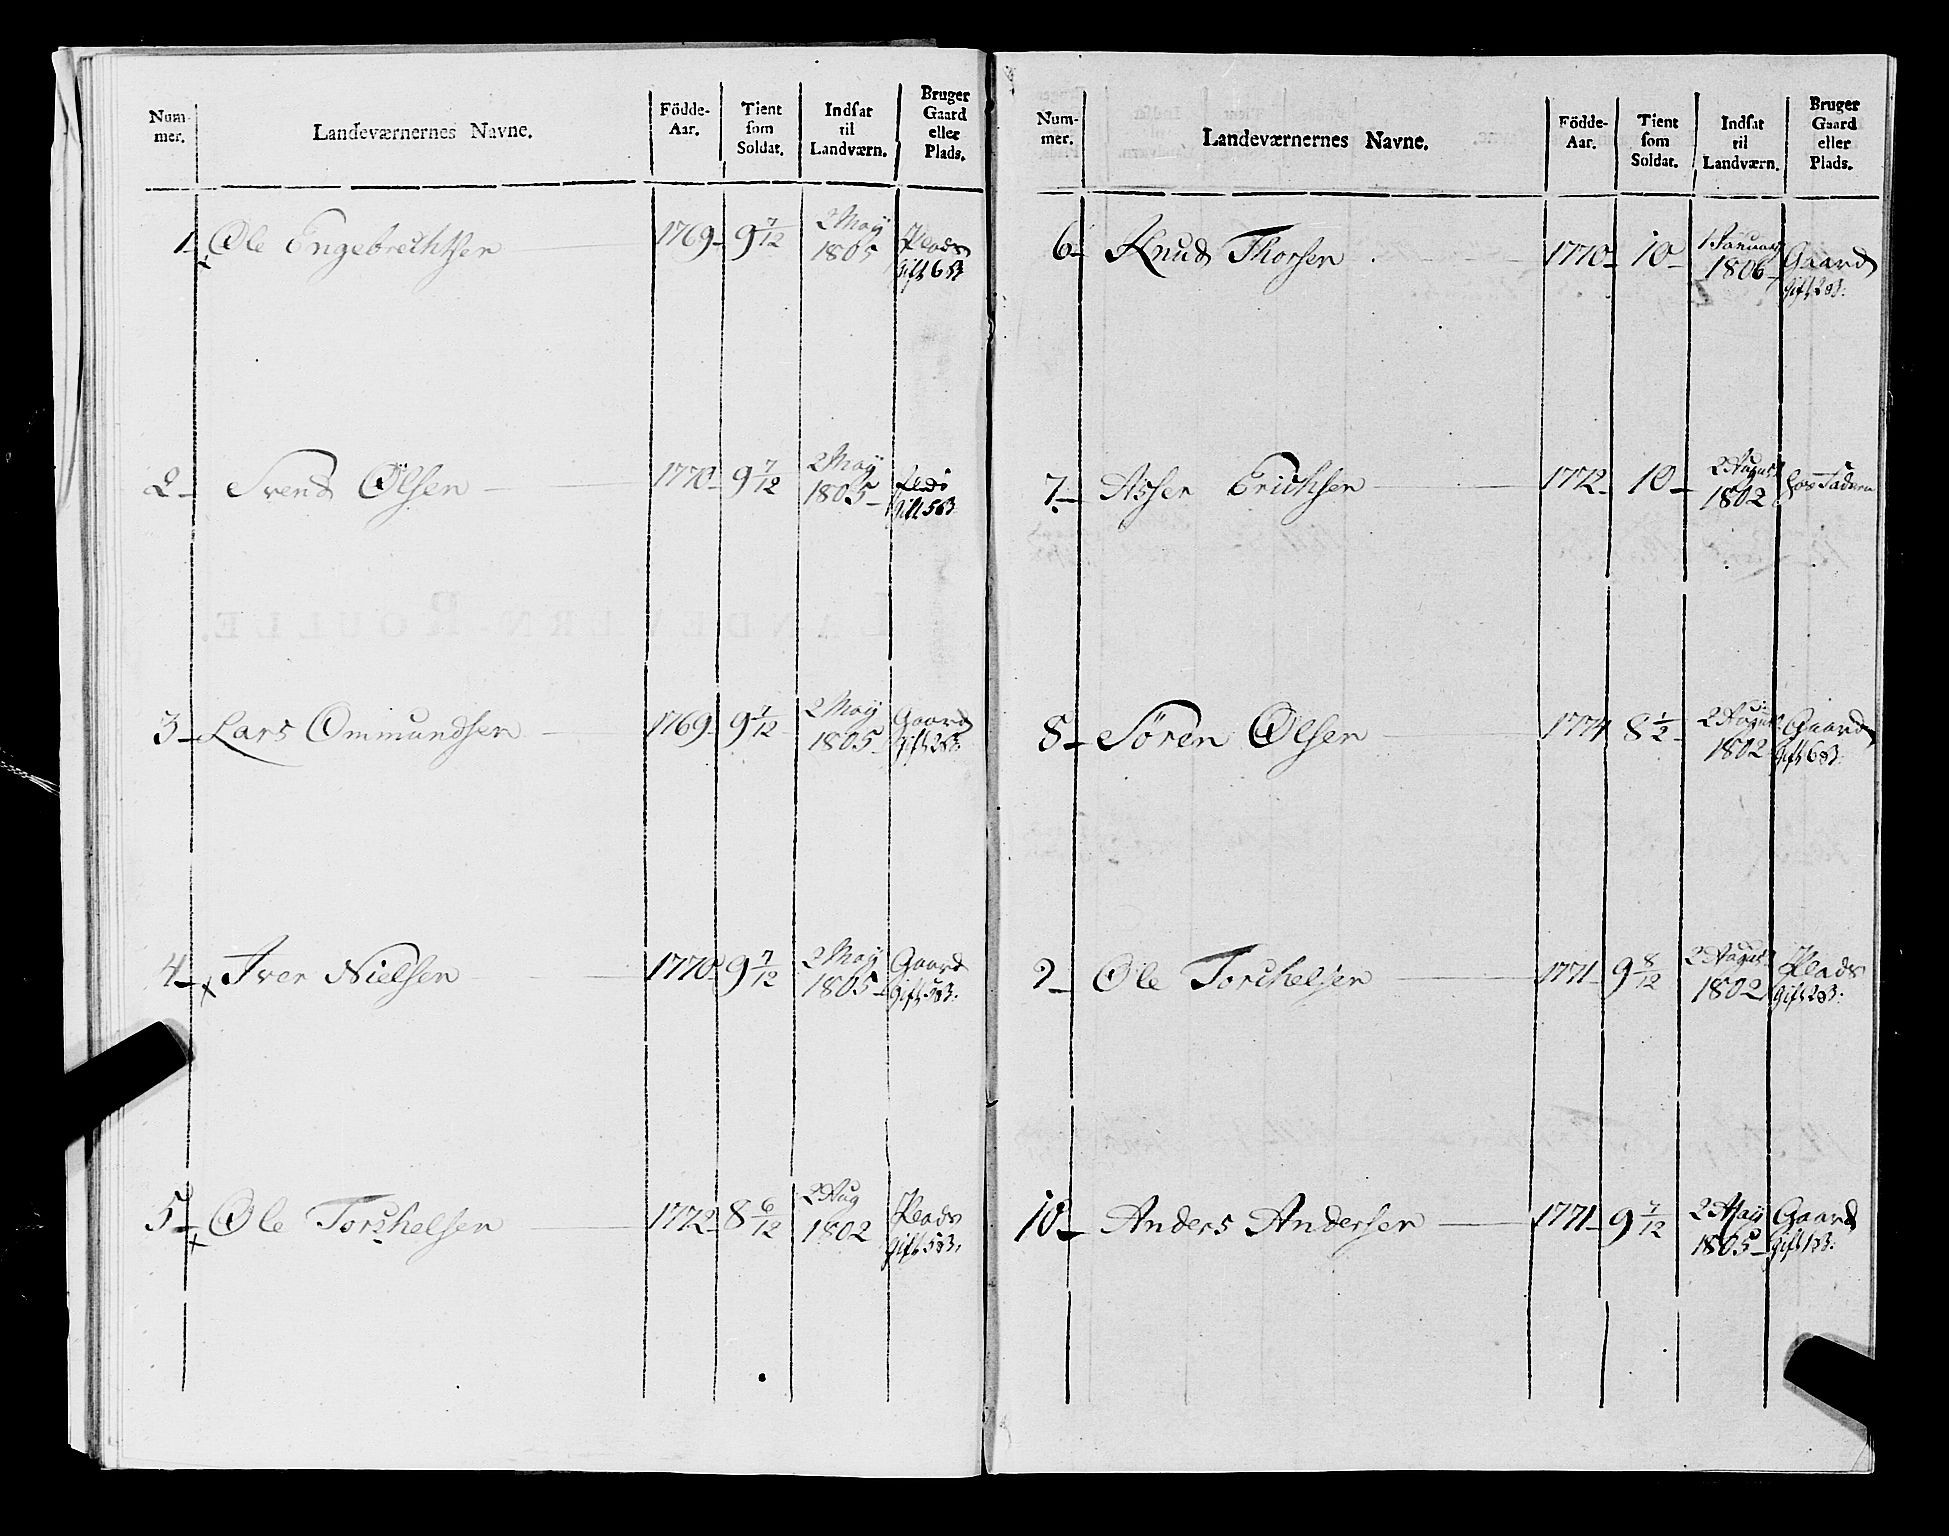 Num-mer. Landeværnernes Navne. Födde-Aar. Tient som Soldat. Indsat til Landværn. Bruger Gaard eller Plads.
1 Ole Engebrechtsen 1769 9 7/12 2 May 1805 Plads Gift 6 B
2 Svend Olsen 1770 9 7/12 2 May 1805 Gift 5 B
3 Lars Ommundsen 1769 9 7/12 2 May 1805 Gaard Gift 2 B:
4 Iver Nielsen 1770 9 7/12 2 May 1805 Gaard Gift 5 B:
5 Ole Torchelsen 1772 8 6/12 2 Aug 1802 Plads Gift 5 B:
Num-mer. Landeværnernes Navne. Födde-Aar. Tient som Soldat. Indsat til Landværn. Bruger Gaard eller Plads.
6 Knud Thorsen 1770 10 1 Januar 1806 Gaard Gift 2 B:
7 Asser Erichsen 1772 10 2 August 1802 hos Faderen
8 Sören Olsen 1774 8 1/2 2 August 1802 Gaard Gift 6 B:
9 Ole Torchelsen 1771 9 8/12 2 August 1802 Plads Gift 2 B:
10 Anders Andersen 1771 9 7/12 2 May 1805 Gaard Gift 1 B: